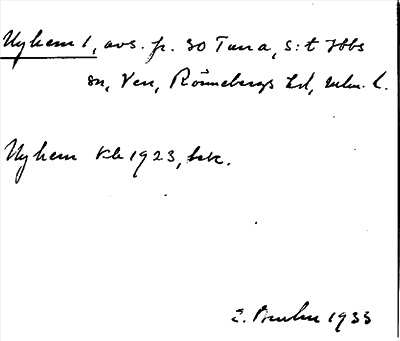 Nyhem 1, avs. fr. 30 Tuna, S:t Ibbs
sn, Ven, Rönnebergs hd, Mlm. l.
Nyhem Kb 1923, bek.
E. Bruhn 1933